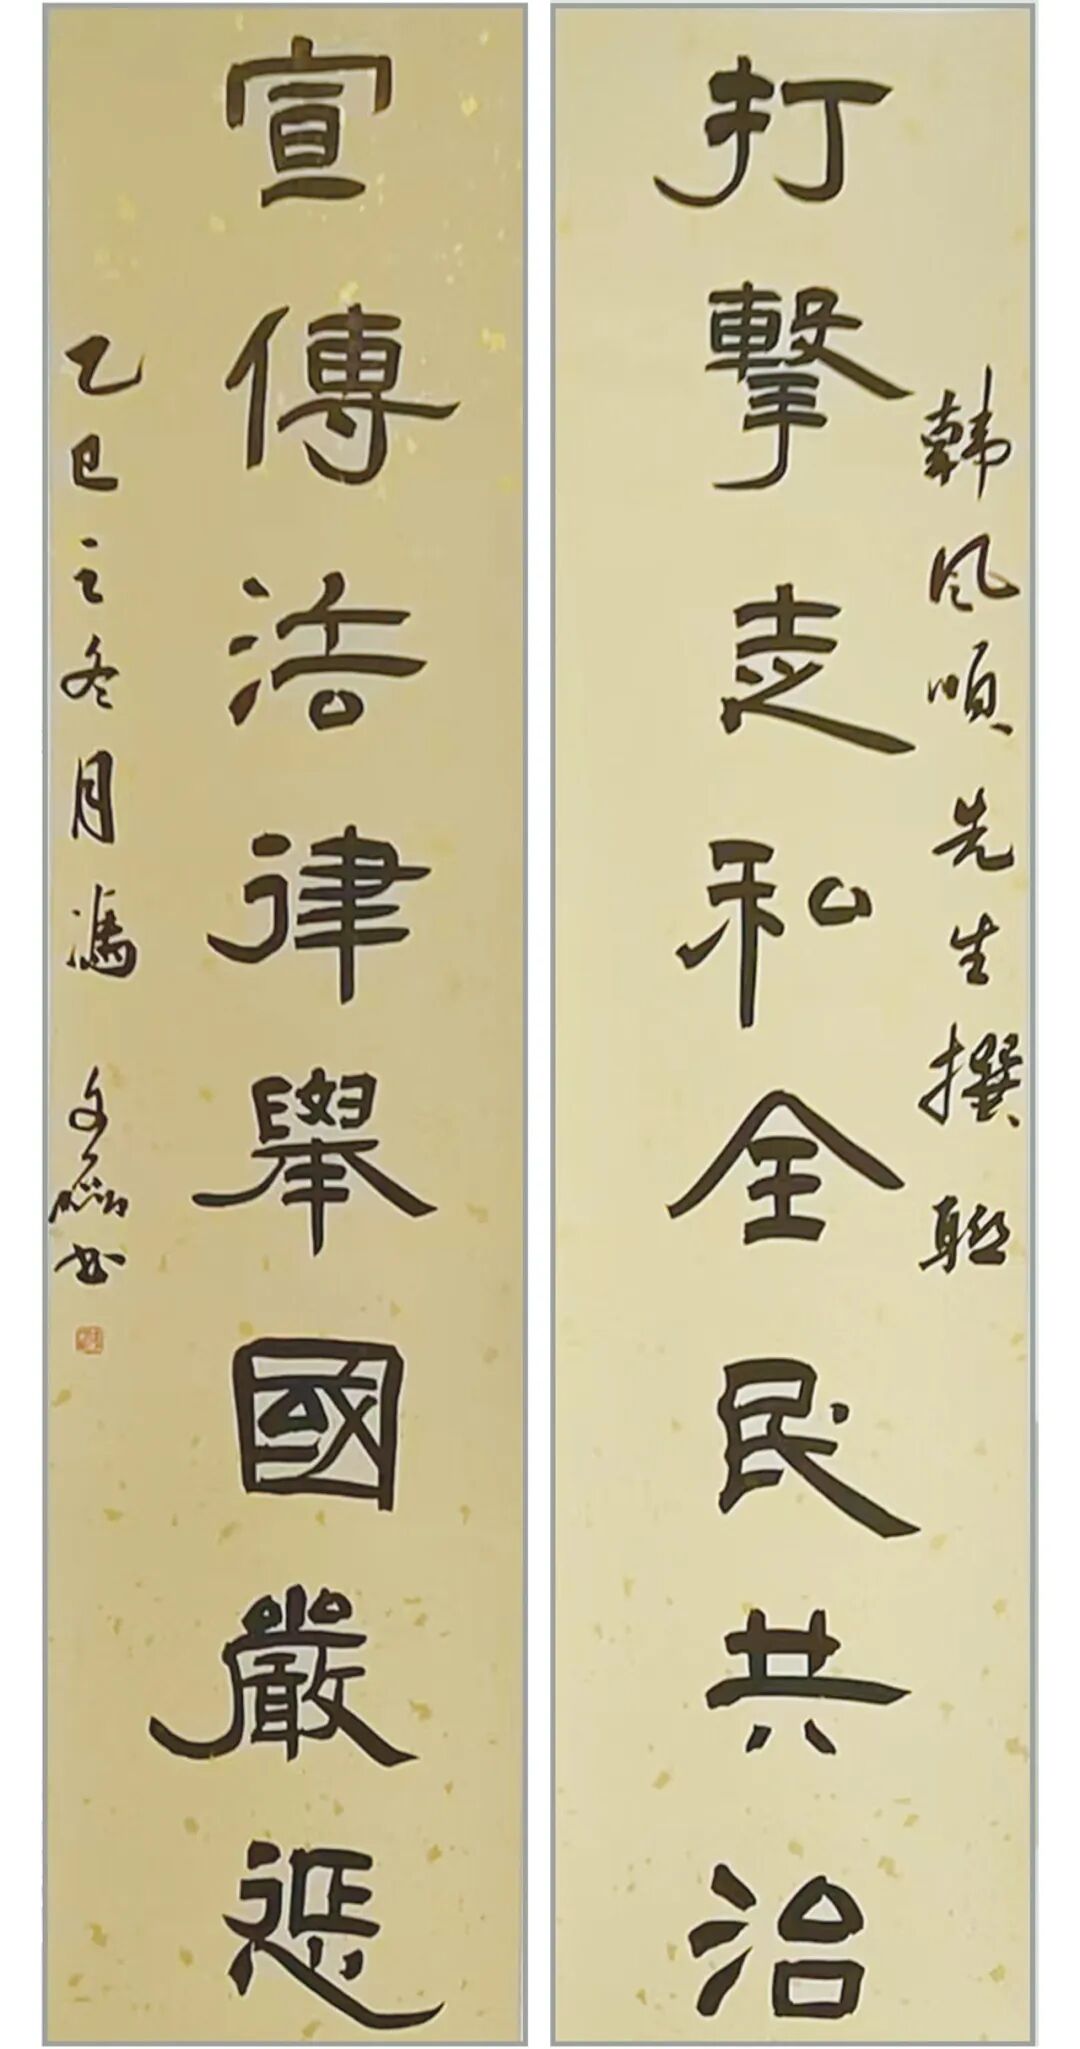 韓风順先生撰聯
打擊走私全民共治
宣傳法律舉國嚴惩
乙巳之冬月馮文书